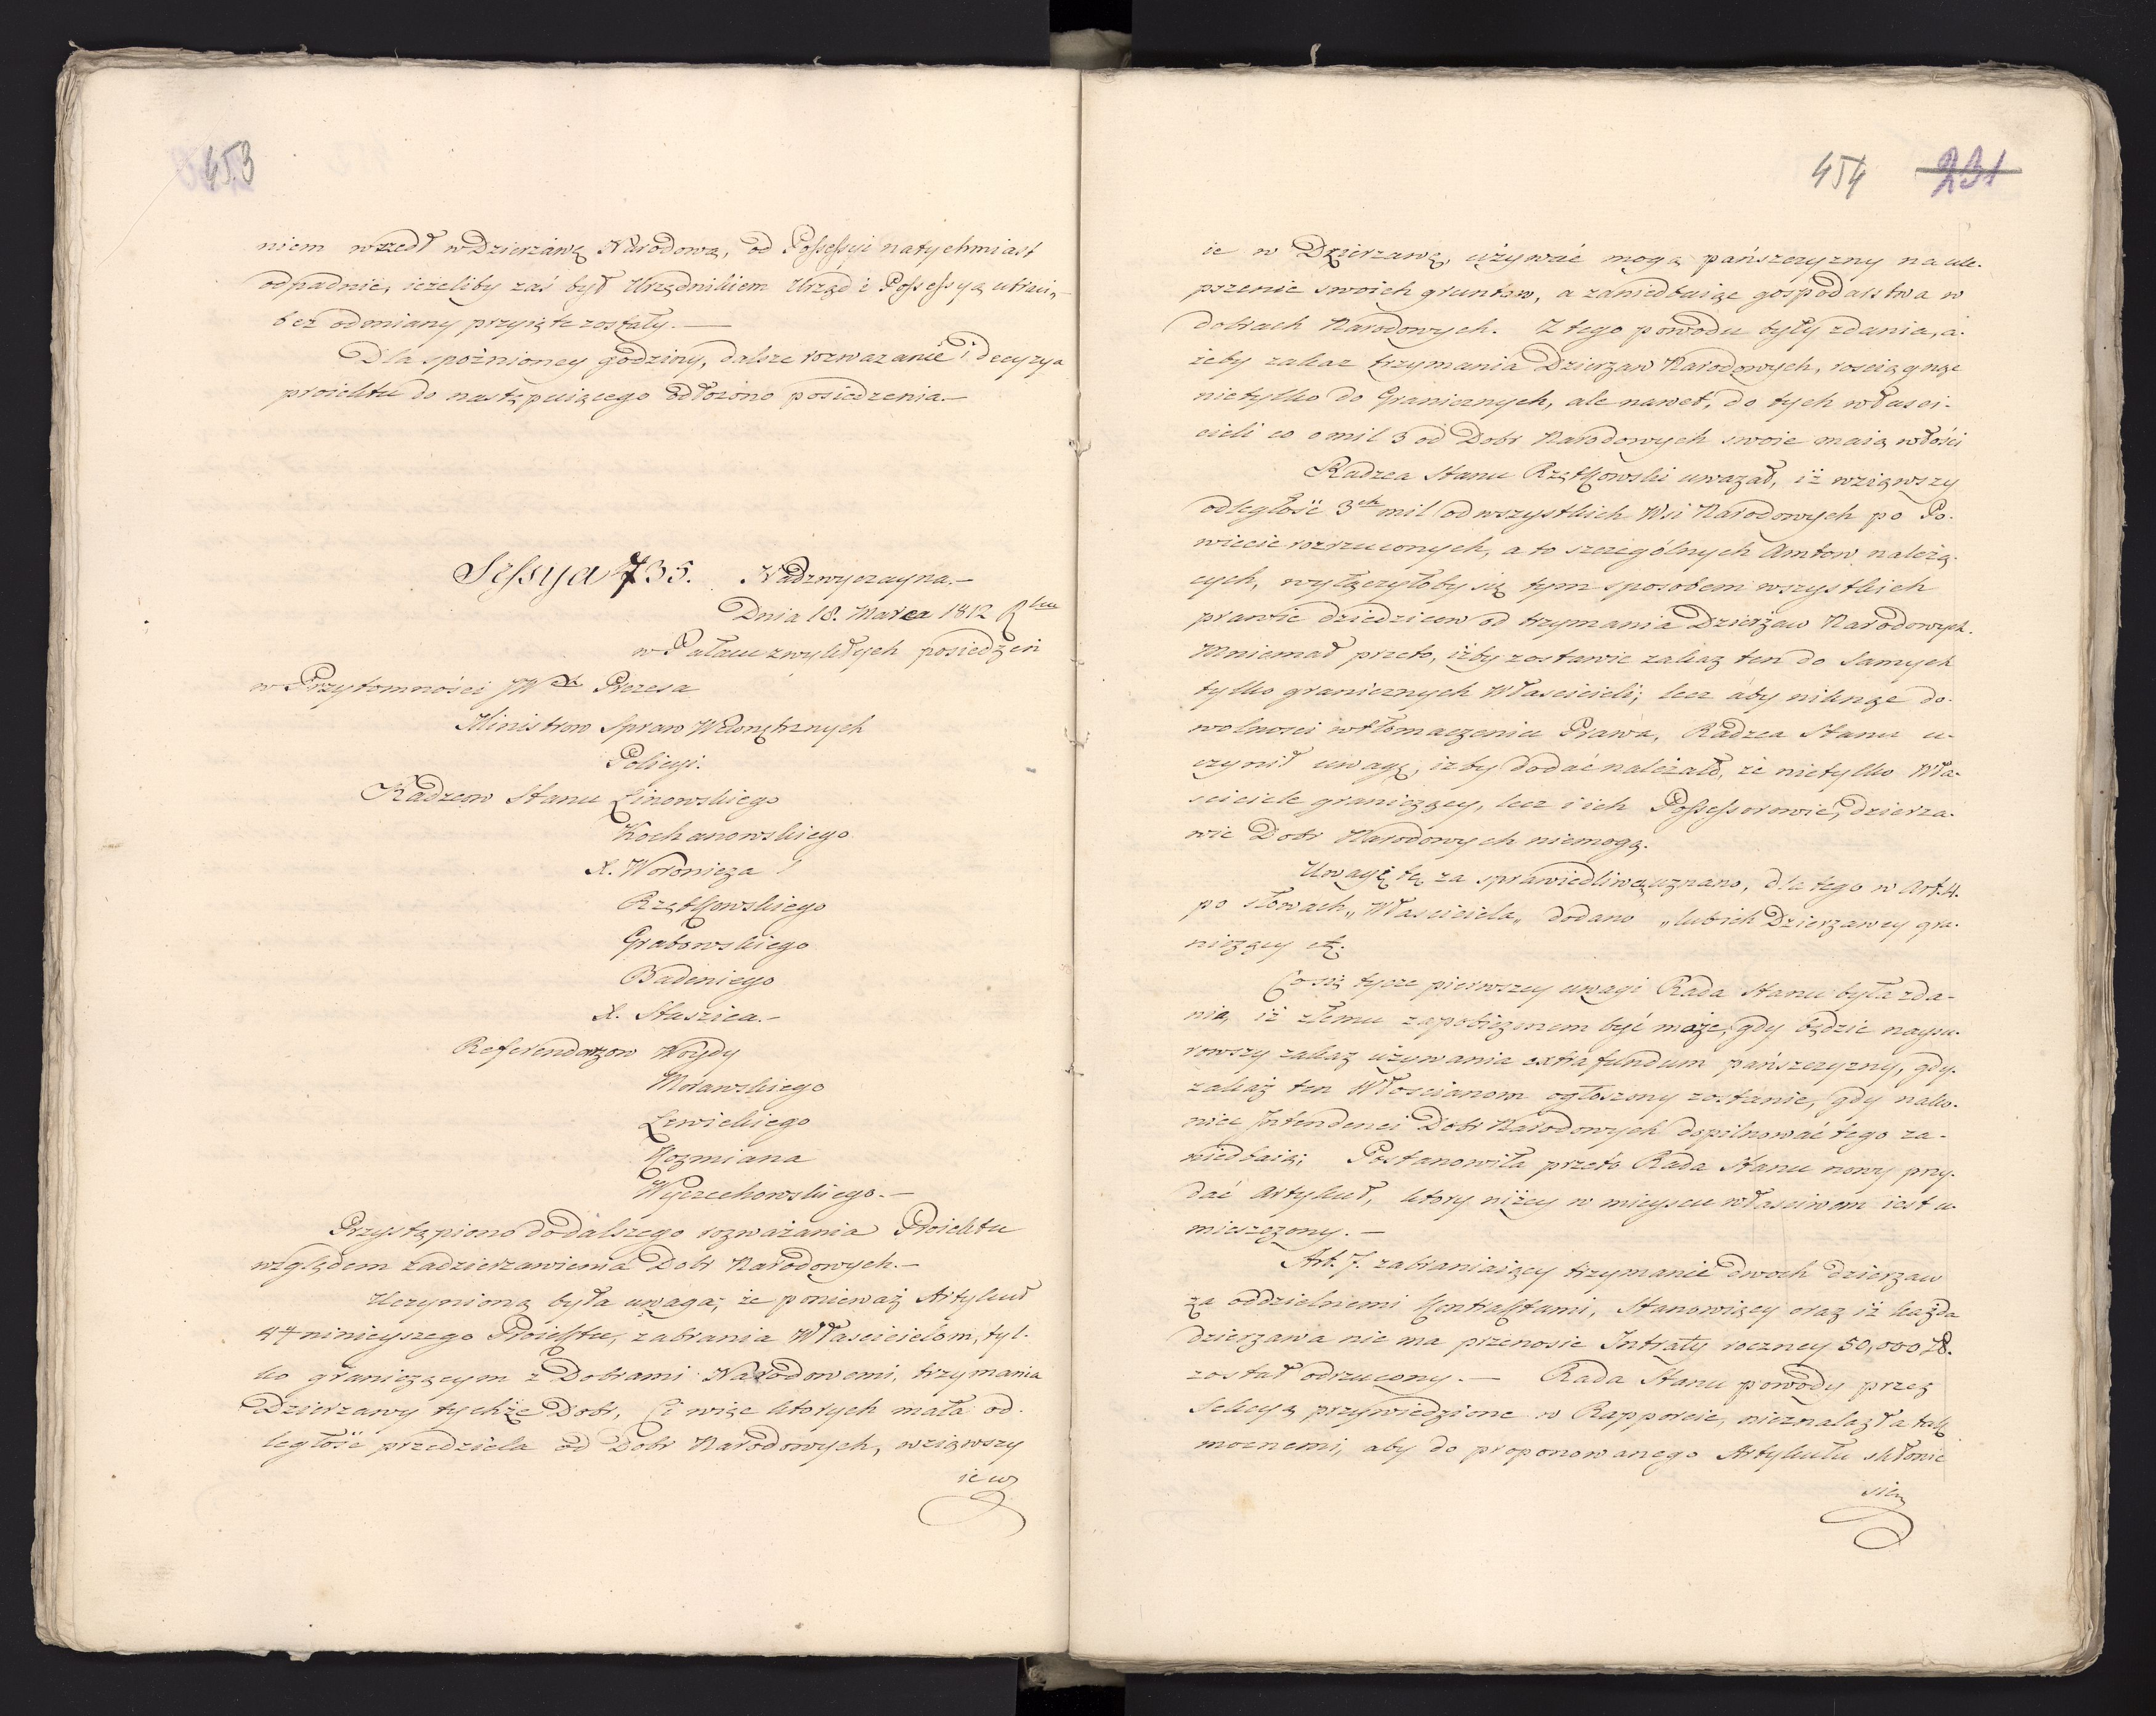 453
niem wszedł w Dzierżawę Narodową, od Possessyi natychmiast
odpadnie, ieżeliby zaś był Urzędnikiem Urząd i Possessyą utraci,
bez odmiany przyięte zostały. —
Dla spóźnioney godziny, dalsze rozważanie i decyzya
proiektu do następuiącego odłożono posiedzenia. —
Sessya 735. Nadzwyczayna. —
Dnia 18. Marca 1812 Rku
w Pałacu zwykłych posiedzeń
w Przytomności JW Prezesa
Ministrow Spraw Wewnętrznych
Policyi.
Radzcow Stanu Linowskiego
Kochanowskiego
X. Woronicza
Rzętkowskiego
Grabowskiego
Badeniego
X. Staszica. —
Referendarzow Woydy
Morawskiego
Lewickiego
Kozmiana
Wyczechowskiego. —
Przystąpiono do dalszego rozważania Proiektu
względem zadzierżawienia Dobr Narodowych. —
Uczynioną była uwaga, że ponieważ Artykuł
4 ninieyszego Proiektu, zabrania Włascicielom, tyl-
ko graniczącym z Dobrami Narodowemi, trzymania
Dzierżawy tychże Dobr, Ci więc ktorych mała od-
ległość przedziela od Dobr Narodowych, wziąwszy
ie w
454 231
ie w Dzierzawę, używać mogą pańszczyzny na ule-
pszenie swoich gruntow, a zaniedbuiąc gospodarstwa w
dobrach Narodowych. Z tego powodu były zdania, a-
żeby zakaz trzymania Dzierżaw Narodowych, rosciągnąć
nietylko do Granicznych, ale nawet, do tych własci-
cieli co o mil 3 od Dobr Narodowych swoie maią włości
Radzca Stanu Rzętkowski uważał, iż wziąwszy
odległość 3ch mil od wszystkich Wsi Narodowych po Po-
wiecie rozrzuconych, a to szczególnych Amtow należą-
cych, wyłączyłoby się tym sposobem wszystkich
prawie dziedzicow od trzymania Dzierżaw Narodowych.
Mniemał przeto, iżby zostawić zakaz ten do samych
tylko granicznych Włascicieli; lecz aby uniknąć do-
wolnosci w tłomaczeniu Prawa, Radzca Stanu u-
czynił uwagę, iżby dodać należało, że nietylko Wła-
sciciele graniczący, lecz i ich Possessorowie, dzierża-
wić Dobr Narodowych niemogą.
Uwagę tę za sprawiedliwą uznano, dla tego w Art. 4.
po słowach „Własciciela„ dodano „lub ich Dzierżawcy gra-
niczący etc.
Co się tycze pierwszey uwagi Rada Stanu była zda-
nia, iż złemu zapobieżonem być może, gdy będzie naysu-
rowszy zakaz używania extra fundum pańszczyzny, gdy
zakaz ten Włoscianom ogłoszony zostanie, gdy nako-
niec Intendenci Dobr Narodowych dopilnować tego za-
niedbaią; Postanowiła przeto Rada Stanu nowy przy-
dać Artykuł, ktory niżey w mieyscu właściwem iest u-
mieszczony. —
Art. 7. zabraniaiący trzymanie dwoch dzierżaw
za oddzielnemi Kontraktami, Stanowiący oraz iż każda
dzierżawa nie ma przenosić Intraty roczney 50,000 Zł.
został odrzucony. — Rada Stanu powody przez
Sekcyą przywiedzione w Rapporcie, nieznalazła tak
mocnemi, aby do proponowanego Artykułu skłonić
się